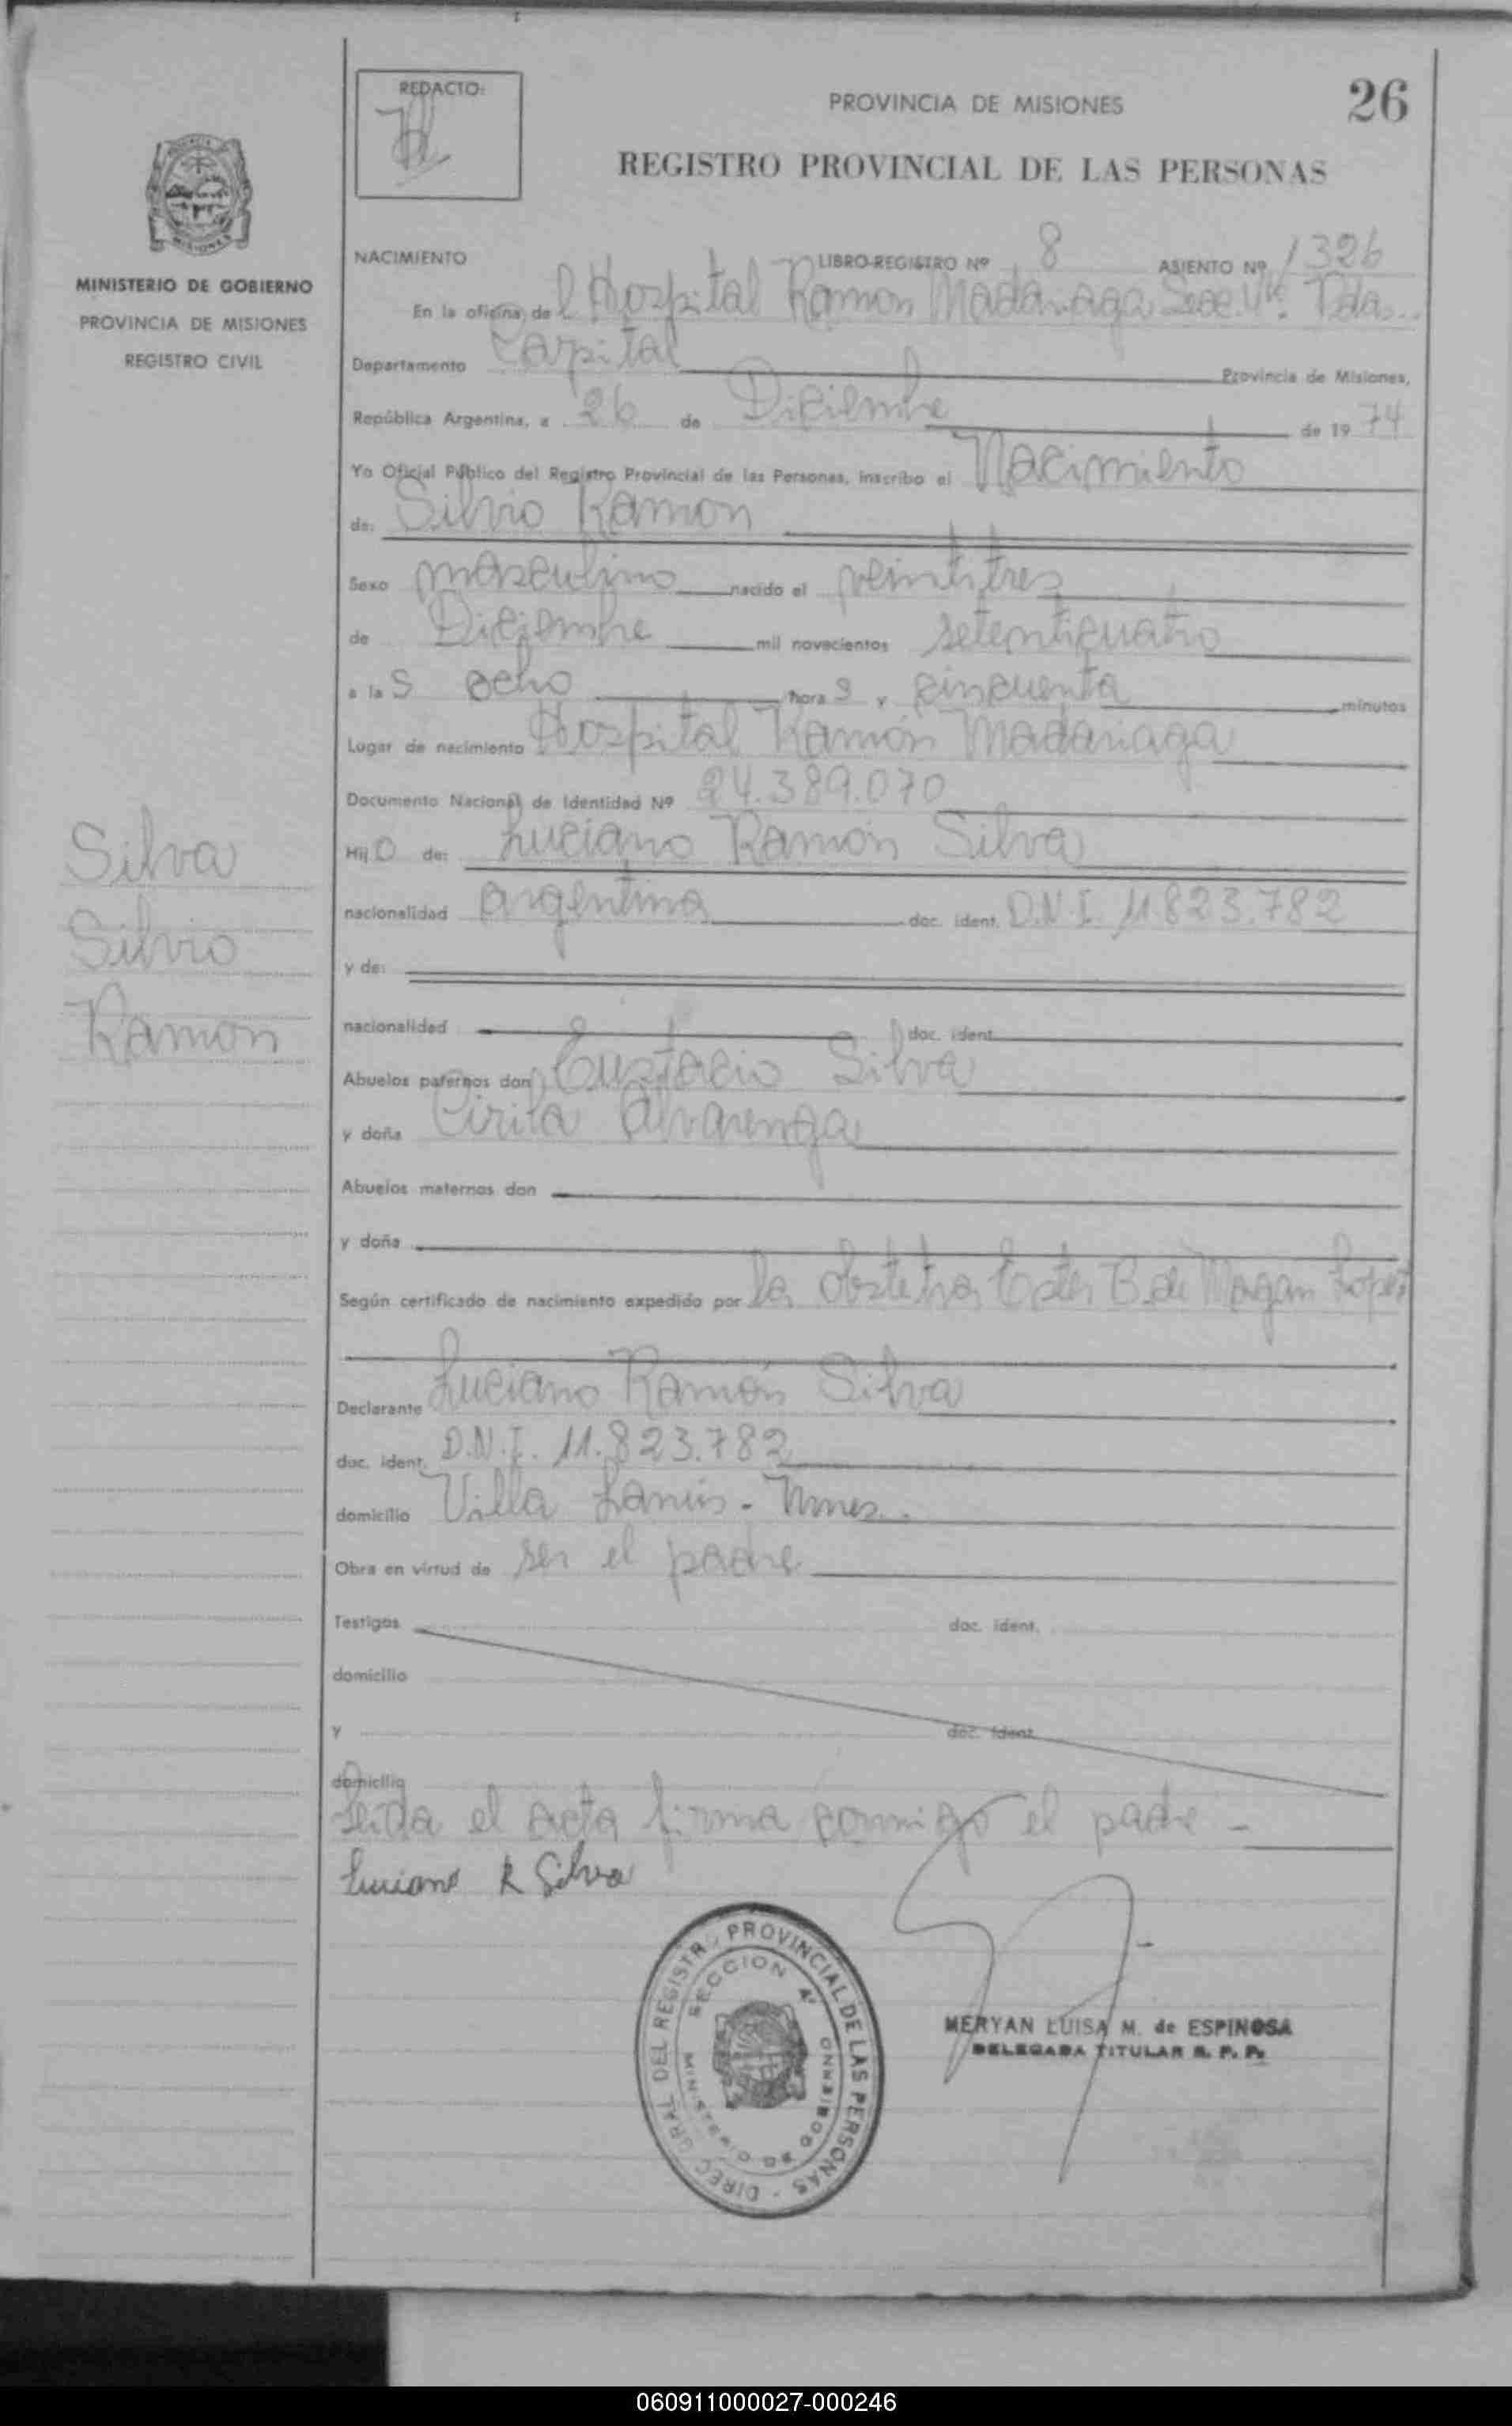 REDACTO:
PROVINCIA DE MISIONES
26
REGISTRO PROVINCIAL DE LAS PERSONAS
MINISTERIO DE GOBIERNO
PROVINCIA DE MISIONES
REGISTRO CIVIL
NACIMIENTO LIBRO-REGISTRO Nº 8 ASIENTO Nº 1326
En la oficina de l Hospital Ramon Madariaga Secc. 4ta. Pdas..
Departamento Capital Provincia de Misiones,
República Argentina, a 26 de Diciembre de 19 74
Yo Oficial Público del Registro Provincial de las Personas, inscribo el Nacimiento
de: Silvio Ramon
Sexo masculino nacido el veintitres
de Diciembre mil novecientos setenticuatro
a las ocho horas y cincuenta minutos
Lugar de nacimiento Hospital Ramón Madariaga
Documento Nacional de Identidad Nº 24.389.070
Hijo de: Luciano Ramón Silva
nacionalidad argentina doc. ident. D.N.I. 11.823.782
y de:
nacionalidad doc. ident.
Abuelos paternos don Eustacio Silva
y doña Cirila Alvarenga
Abuelos maternos don
y doña
Según certificado de nacimiento expedido por la obstetra Ester B. de Magan Lopez
Declarante Luciano Ramón Silva
doc. ident. D.N.I. 11.823.782
domicilio Villa Lanús - Mnes.
Obra en virtud de ser el padre
Testigos doc. ident.
domicilio
y doc. ident.
domicilio
Leida el acta firma conmigo el padre -
Luciano R Silva
Silva
Silvio
Ramon
DIREC. GRAL. DEL REGISTRO PROVINCIAL DE LAS PERSONAS
SECCION 4ª
MINISTERIO DE GOBIERNO
MERYAN LUISA M. de ESPINOSA
DELEGADA TITULAR R. P. P.
060911000027-000246